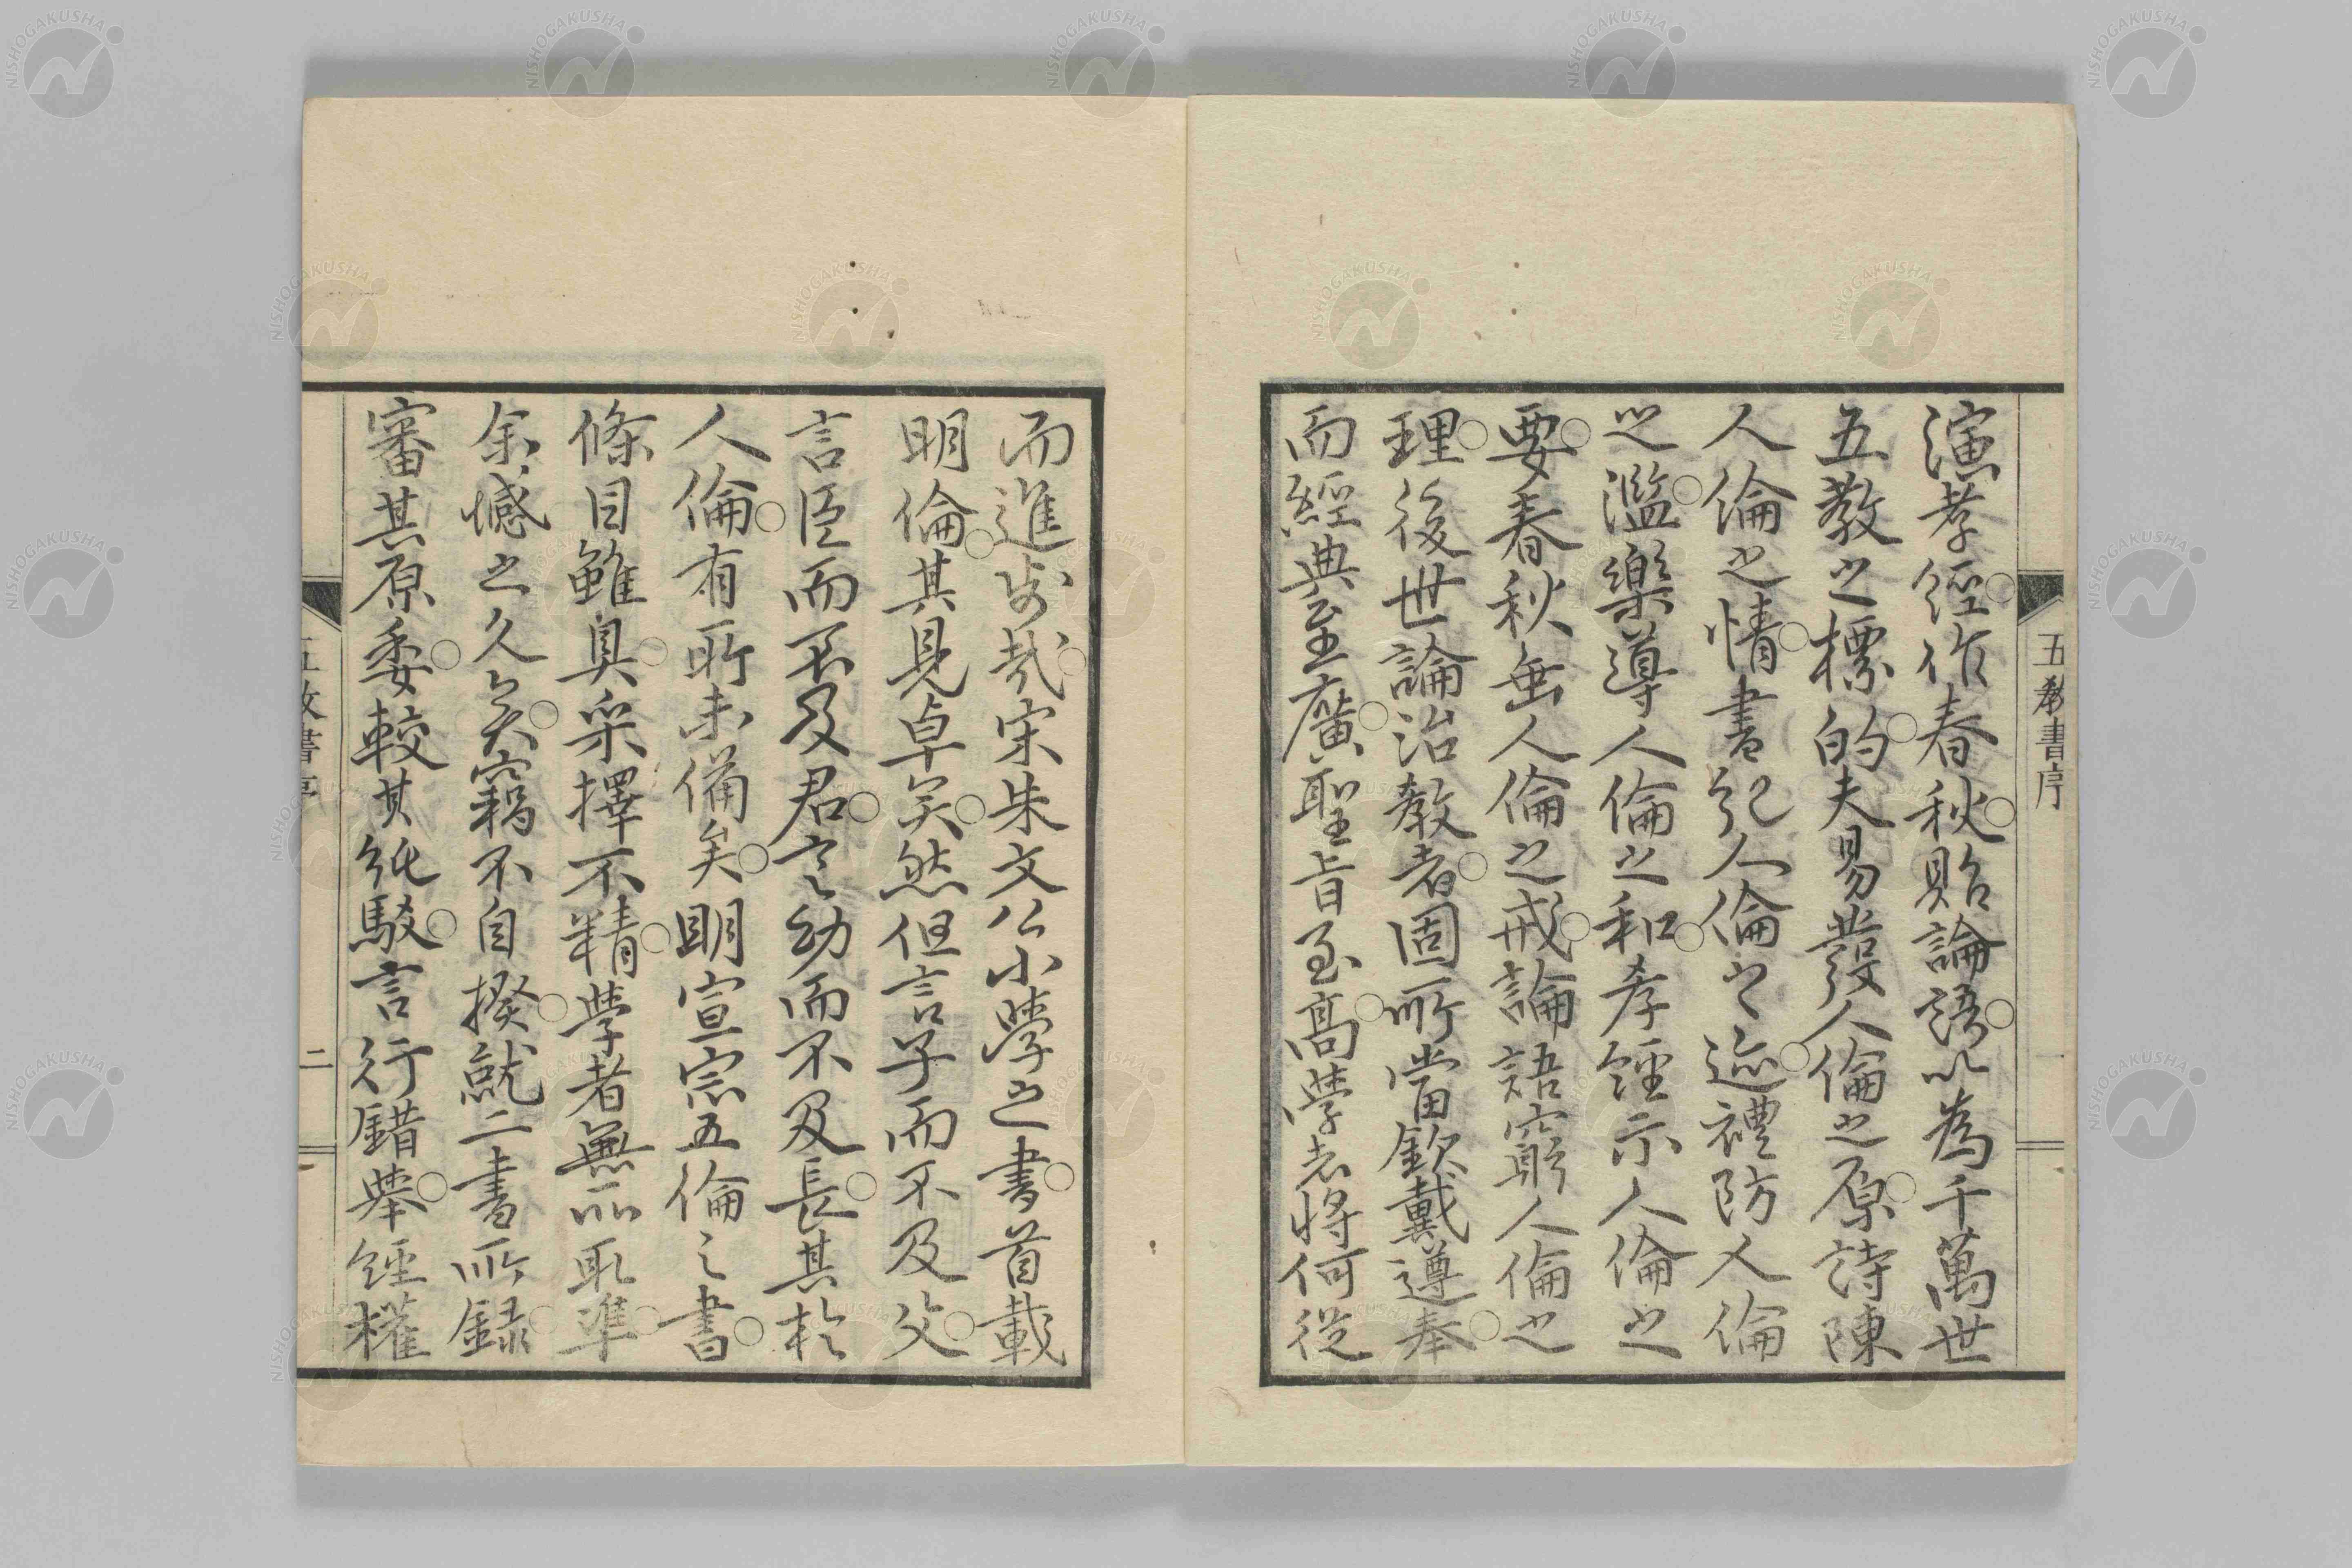 五教書序
演孝經作春秋貽論語以為千萬世
五教之標的夫易發人倫之原詩陳
人倫之情書紀人倫之迹禮防人倫
之濫樂導人倫之和孝經示人倫之
要春秋垂人倫之戒論語窮人倫之
理後世論治教者固所當欽戴遵奉
而經典至廣聖旨至高學者將何從
而進步哉宋朱文公小學之書首載
明倫其見卓矣然但言子而不及父
言臣而不及君言幼而不及長其於
人倫有所未備矣明宣宗五倫之書
條目雖具采擇不精學者無所取準
余憾之久矣竊不自揆就二書所錄
審其原委較其純駁言行錯舉經權
五教書序
二
NISHOGAKUSHA